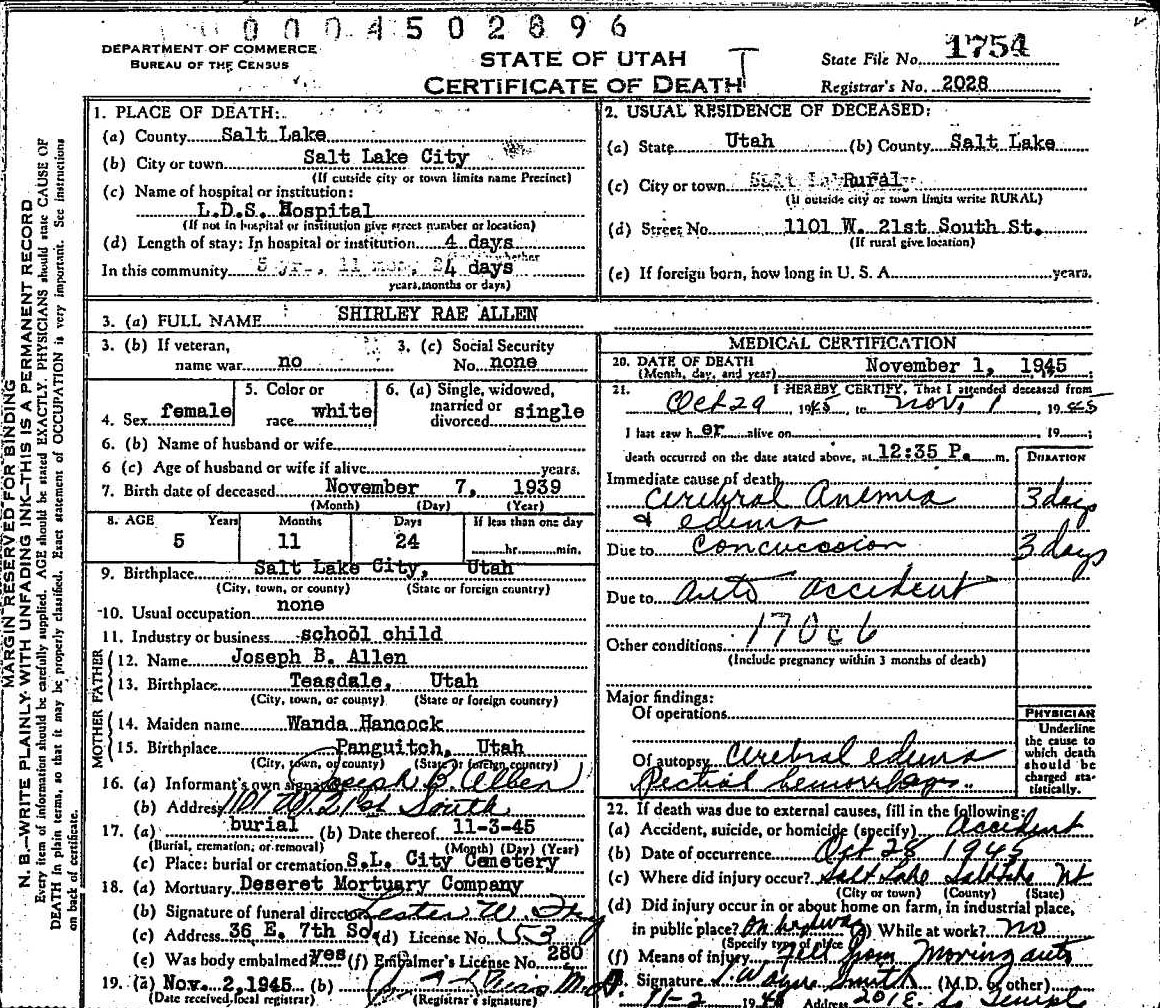 0004502896
DEPARTMENT OF COMMERCE
BUREAU OF THE CENSUS
STATE OF UTAH
CERTIFICATE OF DEATH
State File No. 1754
Registrar's No. 2028
MARGIN RESERVED FOR BINDING
N. B.—WRITE PLAINLY WITH UNFADING INK—THIS IS A PERMANENT RECORD
Every item of information should be carefully supplied. AGE should be stated EXACTLY. PHYSICIANS should state CAUSE OF
DEATH in plain terms, so that it may be properly classified. Exact statement of OCCUPATION is very important. See instructions
on back of certificate.
1. PLACE OF DEATH:
(a) County Salt Lake
(b) City or town Salt Lake City
(If outside city or town limits name Precinct)
(c) Name of hospital or institution:
L.D.S. Hospital
(If not in hospital or institution give street number or location)
(d) Length of stay: In hospital or institution 4 days
In this community 5 yr., 11 mon, 24 days
years, months or days)
2. USUAL RESIDENCE OF DECEASED:
(a) State Utah (b) County Salt Lake
(c) City or town Rural
(If outside city or town limits write RURAL)
(d) Street No. 1101 W. 21st South St.
(If rural give location)
(e) If foreign born, how long in U. S. A. years.
3. (a) FULL NAME SHIRLEY RAE ALLEN
3. (b) If veteran, name war no
3. (c) Social Security No. none
4. Sex female
5. Color or race white
6. (a) Single, widowed, married or divorced single
6. (b) Name of husband or wife
6 (c) Age of husband or wife if alive years.
7. Birth date of deceased November 7, 1939
(Month) (Day) (Year)
8. AGE Years Months Days If less than one day
5 11 24 hr. min.
9. Birthplace Salt Lake City, Utah
(City, town, or county) (State or foreign country)
10. Usual occupation none
11. Industry or business school child
FATHER
12. Name Joseph B. Allen
13. Birthplace Teasdale, Utah
(City, town, or county) (State or foreign country)
MOTHER
14. Maiden name Wanda Hancock
15. Birthplace Panguitch, Utah
(City, town, or county) (State or foreign country)
16. (a) Informant's own signature Joseph B. Allen
(b) Address 1101 W 21st South
17. (a) burial (b) Date thereof 11-3-45
(Burial, cremation, or removal) (Month) (Day) (Year)
(c) Place: burial or cremation S.L. City Cemetery
18. (a) Mortuary Deseret Mortuary Company
(b) Signature of funeral director Lester W.
(c) Address 36 E. 7th So. (d) License No. 153
(e) Was body embalmed? yes (f) Embalmer's License No. 280
19. (a) Nov. 2, 1945 (b) M.D.
(Date received local registrar) (Registrar's signature)
MEDICAL CERTIFICATION
20. DATE OF DEATH November 1, 1945
(Month, day, and year)
21. I HEREBY CERTIFY, That I attended deceased from
Oct 29 1945, to Nov. 1 1945
I last saw her alive on , 19 ;
death occurred on the date stated above, at 12:35 P. m.
DURATION
Immediate cause of death
Cerebral Anemia 3 days
& edema
Due to Concussion 3 days
Due to auto accident
Other conditions 170c6
(Include pregnancy within 3 months of death)
Major findings:
Of operations
Of autopsy Cerebral edema
hemorrhage
PHYSICIAN
Underline
the cause to
which death
should be
charged sta-
tistically.
22. If death was due to external causes, fill in the following:
(a) Accident, suicide, or homicide (specify) Accident
(b) Date of occurrence Oct 28 1945
(c) Where did injury occur? Salt Lake Salt Lake Ut
(City or town) (County) (State)
(d) Did injury occur in or about home on farm, in industrial place,
in public place? On highway (e) While at work? no
(Specify type of place)
(f) Means of injury Fell from Moving auto
Signature Wayne Smith (M.D. or other)
11-2 194 Address